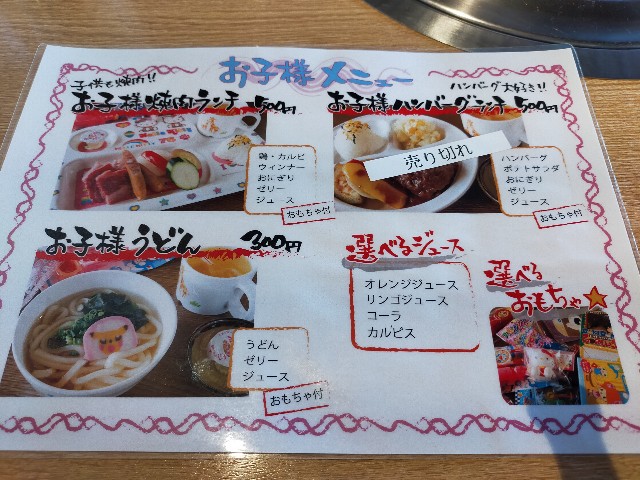 お子様メニュー
子供も焼肉!!
お子様焼肉ランチ 500円
鶏・カルビ
ウィンナー
おにぎり
ゼリー
ジュース
おもちゃ付
ハンバーグ大好き!!
お子様ハンバーグランチ 500円
売り切れ
ハンバーグ
ポテトサラダ
おにぎり
ゼリー
ジュース
おもちゃ付
お子様うどん 300円
うどん
ゼリー
ジュース
おもちゃ付
選べるジュース
オレンジジュース
リンゴジュース
コーラ
カルピス
選べる
おもちゃ